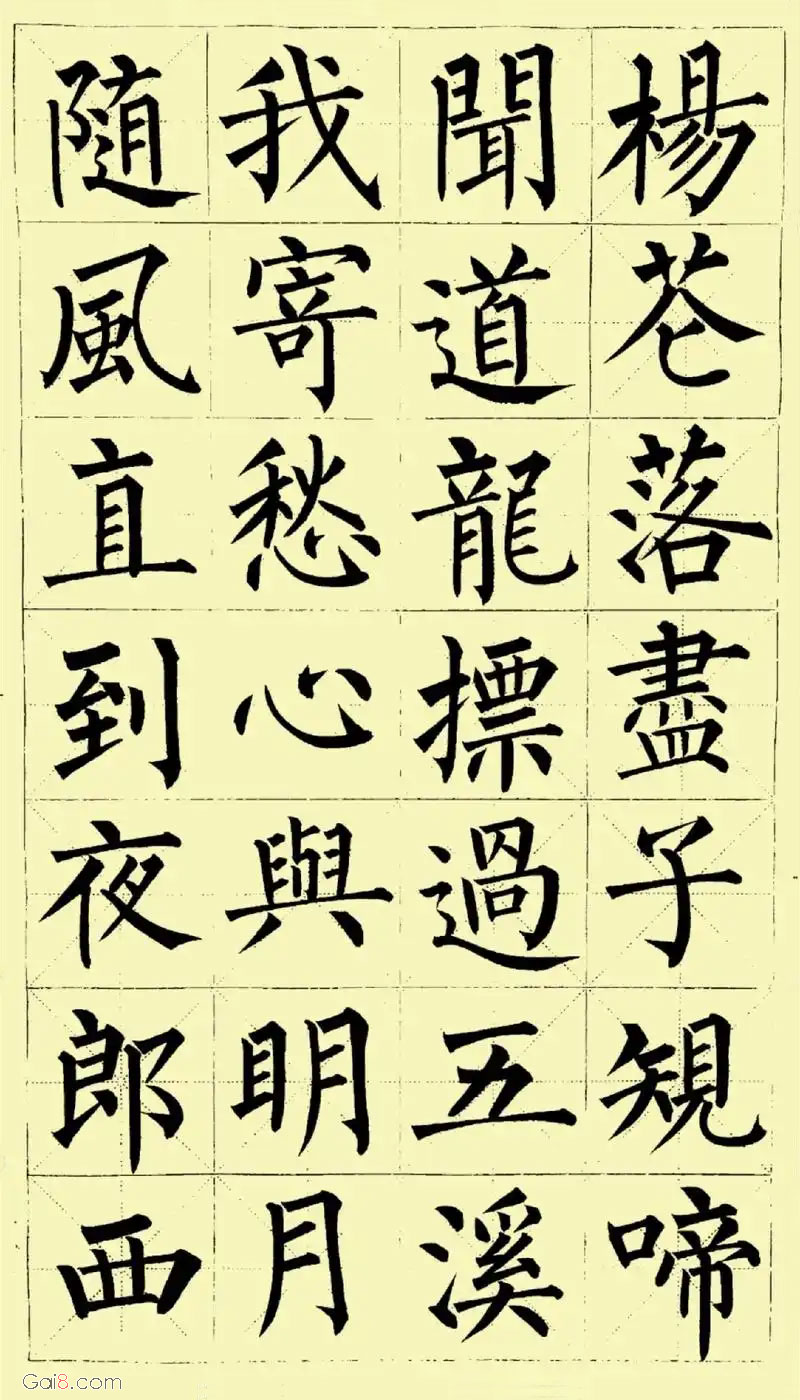 楊花落盡子規啼
聞道龍標過五溪
我寄愁心與明月
隨風直到夜郎西
Gai8.com